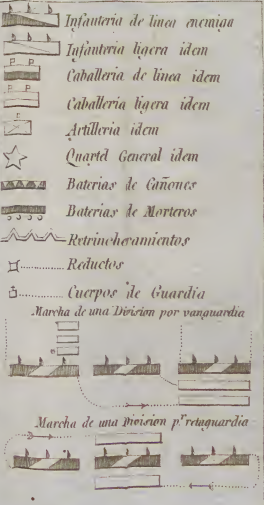 Infanteria de linea enemiga
Infanteria ligera idem
Caballeria de linea idem
Caballeria ligera idem
Artilleria idem
Quartel General idem
Baterias de Cañones
Baterias de Morteros
Retrincheramientos
Reductos
Cuerpos de Guardia
Marcha de una Division por vanguardia
Marcha de una Division pr. retaguardia